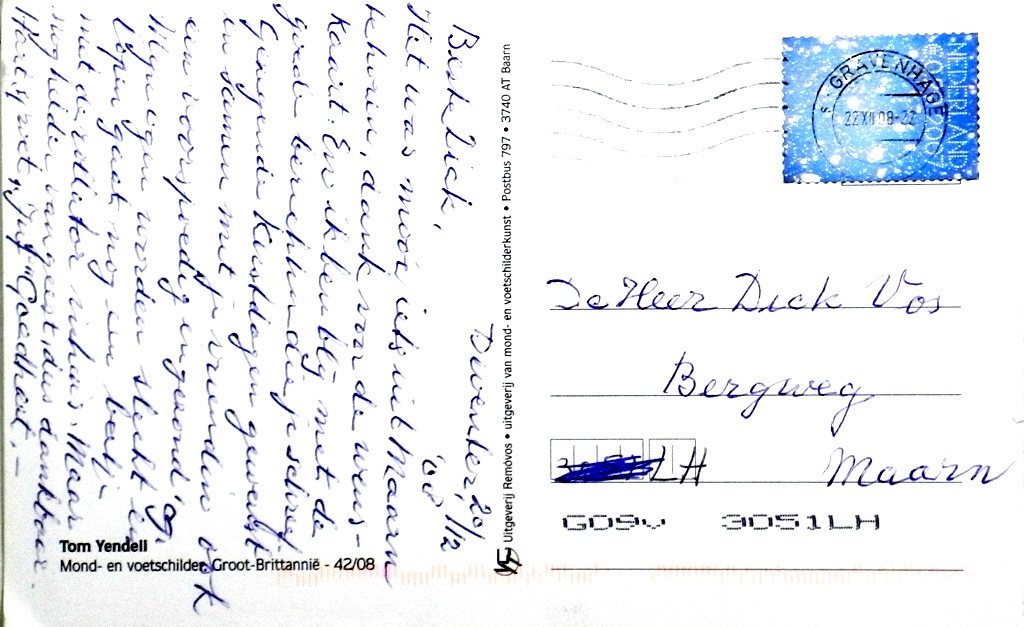 Deventer, 20/12
'08
Beste Dick,
Het was mooi iets uit Maarn
te horen, dank voor de wens-
kaart. En ik ben blij met de
goede berichten die je schreef.
Genegende Kerstdagen gewenst
en samen met je vrienden ook
een voorspoedig ingerond,
Mijn ogen worden slecht en
lopen gaat nog een beetje
met de rollator in huis. Maar
nog helder van geest, dus dankbaar.
Hart. groet, "juf" Goedhart.-
Tom Yendell
Mond- en voetschilder, Groot-Brittannië - 42/08
Uitgeverij Renóvos • uitgeverij van mond- en voetschilderkunst • Postbus 797 • 3740 AT Baarn
NEDERLAND
2007
'S-GRAVENHAGE
22 XII 08-22
De Heer Dick Vos
Bergweg
LH Maarn
GO9v 3051LH